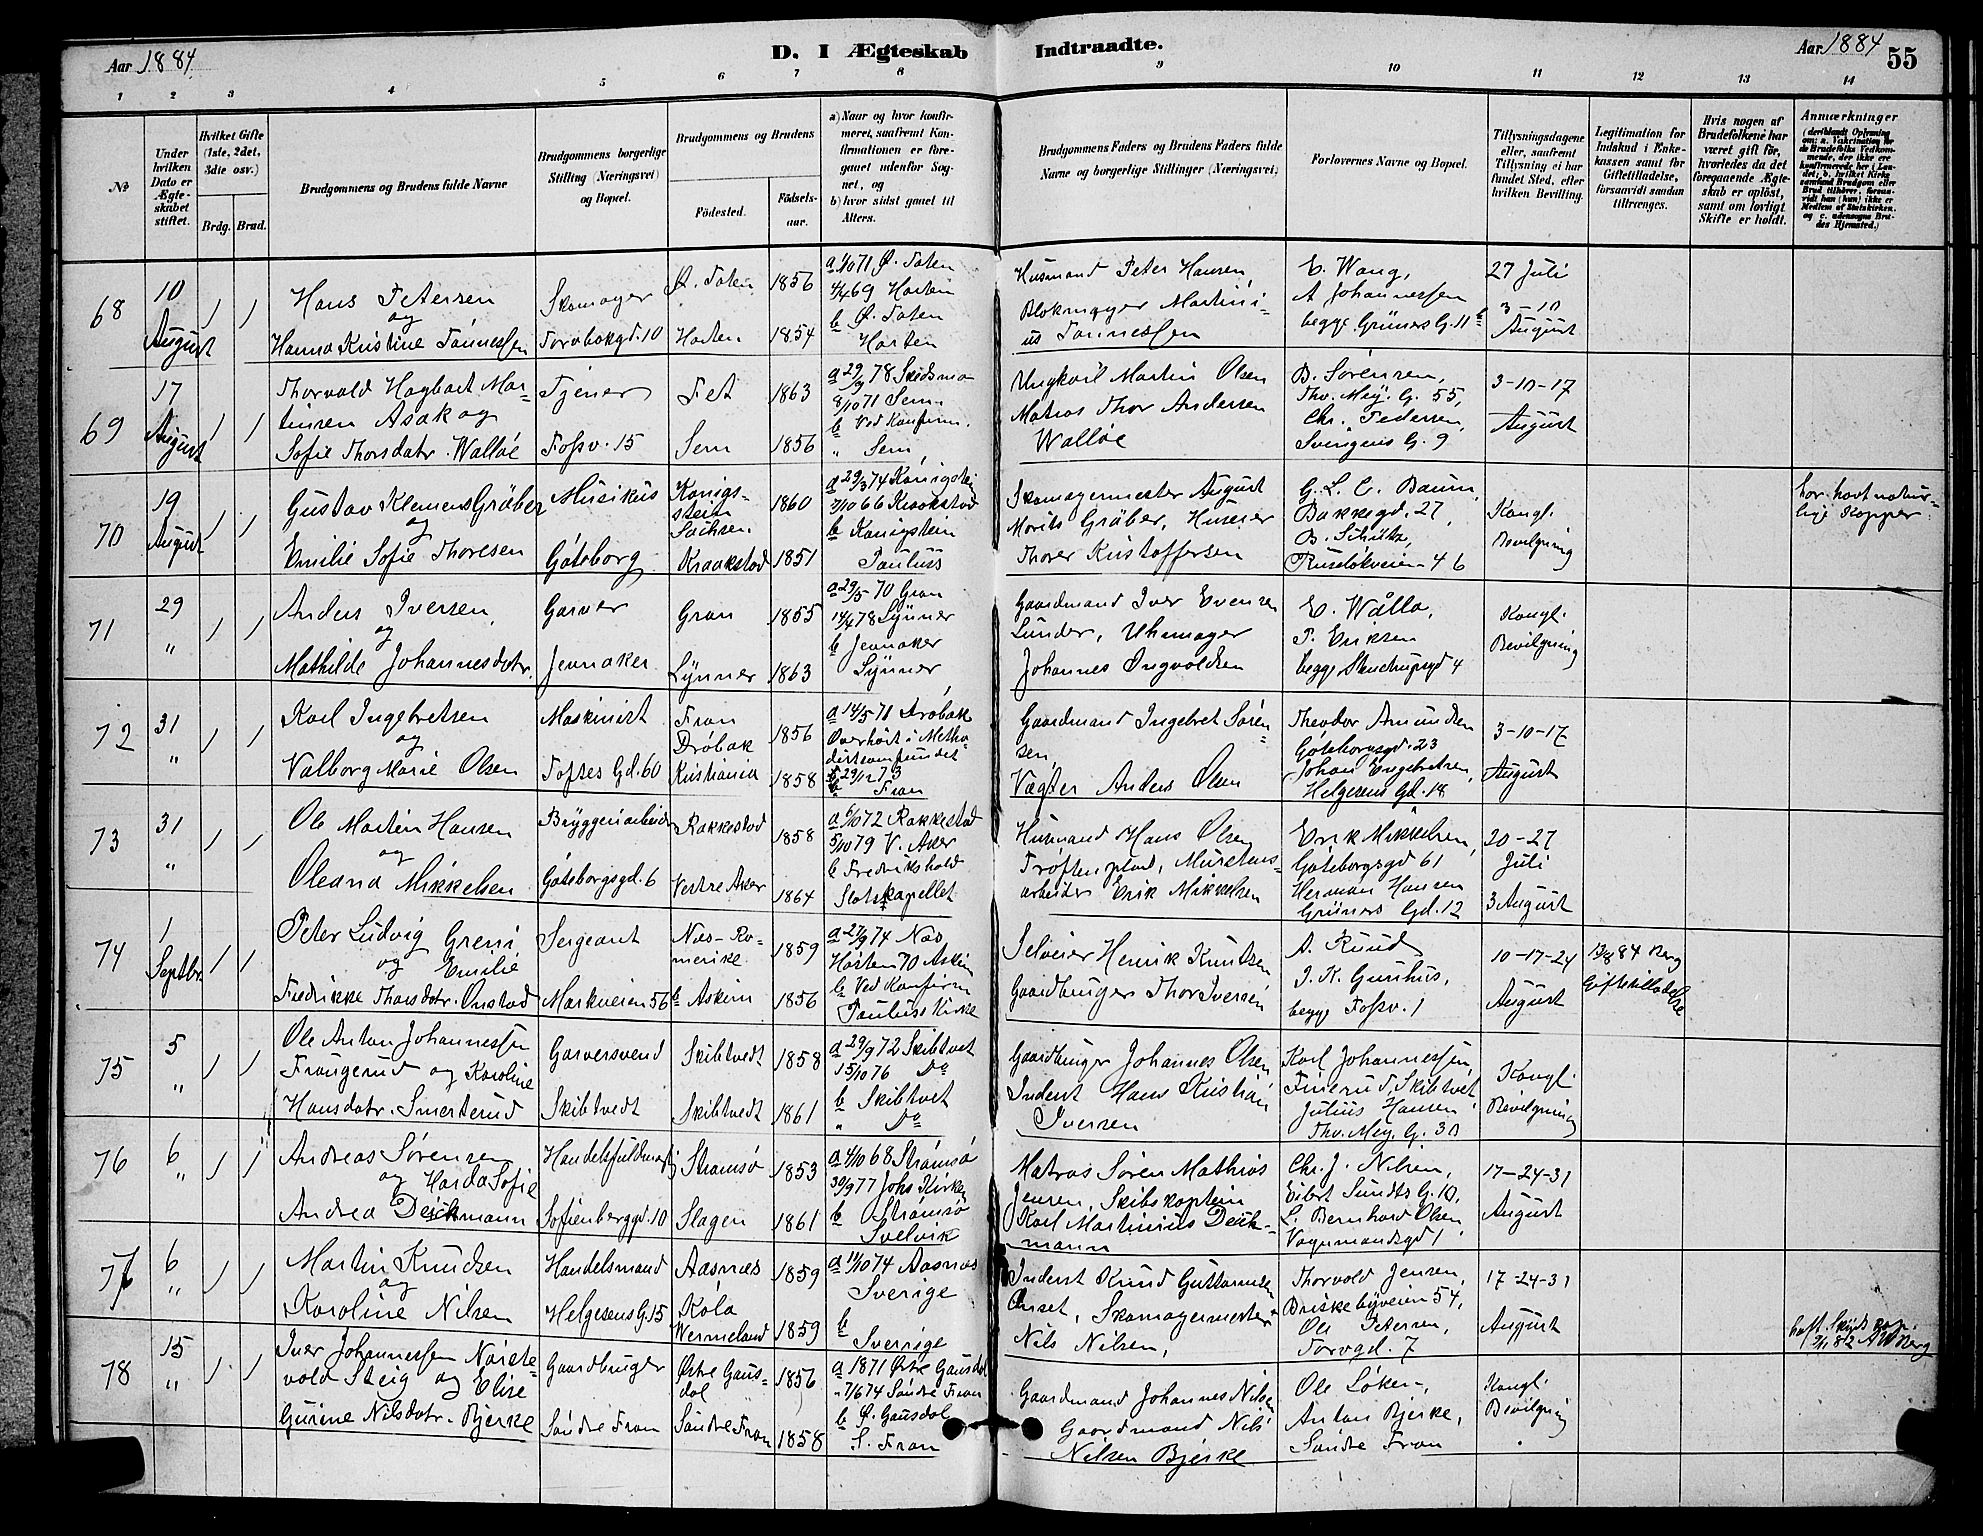 Aar 1884.
D. I Ægteskab Indtraadte.
Aar 1884
55
1 2 3 4 5 6 7 8 9 10 11 12 13 14
No
Under hvilken Dato er Ægteskabet stiftet.
Hvilket Gifte (1ste, 2det, 3die osv.)
Brdg. Brud.
Brudgommens og Brudens fulde Navne
Brudgommens borgerlige Stilling (Næringsvei) og Bopæl.
Brudgommens og Brudens
Fødested.
Fødselsaar.
a) Naar og hvor konfirmeret, saafremt Konfirmationen er foregaaet udenfor Sognet, og
b) hvor sidst gaaet til Alters.
Brudgommens Faders og Brudens Faders fulde Navne og borgerlige Stillinger (Næringsvei)
Forlovernes Navne og Bopæl.
Tillysningsdagene eller, saafremt Tillysning ei har fundet Sted, efter hvilken Bevilling.
Legitimation for Indskud i Enkekassen samt for Giftetilladelse, forsaavidt saadan tiltrænges.
Hvis nogen af Brudefolkene har været gift før, hvorledes da det foregaaende Ægteskab er opløst, samt om lovligt Skifte er holdt.
Anmærkninger
68
10 August
/ /
Hans Petersen
og
Hanna Kristine Tönnessen
Skomager
Torvbakgd. 10
Ø. Toten
Horten
1856
1854
a 1/10 71 Ø. Toten
4/4 69 Horten
b Ø. Toten
Horten
Husmand Peter Hansen,
Blokmager Martini-
us Tönnessen
E. Wang,
A Johannessen
begge Grüners G. 11 b
27 Juli
3-10
August
69
17 August
/ /
Thorvald Hagbart Mar-
tinsen Asak og
Sofie Thorsdatr. Wallöe
Tjener
Fossv. 15
Fet
Sem
1863
1856
a 29/9 78 Skedsmo
8/10 71 Sem
b Ved Konfirm.
" Sem,
Ungkarl Martin Olsen
Matros Thor Andersen
Wallöe
B. Sörensen,
Thv. Mey. G. 55,
Chr. Pedersen,
Svengens G. 9
3-10-17
August
70
19 August
/ /
Gustav Klemens Gräber
og
Emilie Sofie Thoresen
Musikus
Göteborg
Konigs-
stein
Sachsen
Kraakstad
1860
1851
a 29/3 74 Königstein
7/10 66 Kraakstad
b Konigstein
Paulus
Skomagermester August
Morits Gräber, Huseier
Thorer Kristoffersen
G. L. C. Baum,
Bakkegd. 27,
B. Schütz,
Ruselökveien 46
Kongl.
Bevilgning
har havt natur-
lige Kopper
71
29 "
/ /
Anders Iversen,
og
Mathilde Johannesdatr.
Garver
Jevnaker
Gran
Lynner
1855
1863
a 29/5 70 Gran
14/4 78 Lynner
b Jevnaker
Lynner
Gaardmand Iver Evensen
Lunder, Uhrmager
Johannes Ingvoldsen
E. Wålla,
P. Eriksen
begge Stenstrupsgd 4
Kongl.
Bevilgning
72
31 "
/ /
Karl Ingebretsen
og
Valborg Marie Olsen
Maskinist
Toftes Gd. 60
Fron
Dröbak
Kristiania
1856
1858
a 14/5 71 Dröbak
Overhört i Metho-
distsamfundet
29/12 73
b Fron
Gaardmand Ingebret Sören-
sen,
Vægter Anders Olsen
Theodor Amundsen
Göteborgsgd. 23
Johan Engebretsen,
Helgesens Gd. 18
3-10-17
August
73
31 "
/ /
Ole Martin Hansen
og
Oleana Mikkelsen
Bryggeriarbeider
Göteborgsgd. 6
Rakkestad
Vestre Aker
1858
1864
a 6/10 72 Rakkestad
5/10 79 V. Aker
b Fredrikshald
Slotskapellet
Husmand Hans Olsen
Tröftenplad, Murstens-
arbeider Erik Mikkelsen
Erik Mikkelsen,
Göteborgsgd 61
Herman Hansen
Grüners Gd. 12
20-27
Juli
3 August
74
1 Septbr.
/ /
Peter Ludvig Greni
og Emilie
Fredrikke Thorsdatr. Onstad
Sergeant
Markveien 56 b
Næs-Ro-
merike
Askim
1859
1856
a 27/9 74 Næs
Hösten 70 Askim
b Ved Konfirm
Paulus Kirke
Selveier Henrik Knudsen
Gaardbruger Thor Iversen
A. Ruud
J. K. Gunhus,
begge Fossv. 1
10-17-24
August
13/8 84 Berg
Giftetilladelse
75
5 "
/ /
Ole Anton Johannessen
Fraugerud og Karoline
Hansdatr. Smerterud
Garversvend
Skibtvedt
Skibtvedt
Skibtvedt
1858
1861
a 29/9 72 Skibtvet
15/10 76 Do
b Skibtvet
" Do
Gaardbruger Johannes Olsen
Inderst Hans Kristian
Iversen
Karl Johannessen,
Finerud, Skibtvet,
Julius Hansen
Thv. Mey. G. 30
Kongl.
Bevilgning
76
6 "
/ /
Andreas Sörensen
og Harda Sofie
Andrea Deichmann
Handelsfuldmæg
Sofienberggd. 10
Strömsö
Slagen
1853
1861
a 4/10 68 Strömsö
30/9 77 Johs Kirke
b Strömsö
Svelvik
Matros Sören Mathias
Jensen, Skibskaptein
Karl Martinius Deich-
mann
Chr. J. Nilsen,
Eilert Sundts G. 10,
L. Bernhard Olsen
Vognmandsgd 1
17-24-31
August
77
6 "
/ /
Martin Knudsen
og
Karoline Nilsen
Handelsmand
Helgesens G. 15
Aasnæs
Köla
Wermeland
1859
1859
a 11/10 74 Aasnæs
Sverige
b
Sverrige
Inderst Knud Guttormsen
Onset, Skomagermester
Nils Nilsen,
Thorvold Jensen,
Briskebyveien 54,
Ole Petersen,
Torvgd. 7
17-24-31
August
78
15 "
/ /
Iver Johannessen Norste-
vold Steig og Elise
Gurine Nilsdatr. Bjerke
Gaardbruger
Söndre Fron
Östre Gaus-
dal
Söndre Fron
1856
1858
a 1871 Östre Gausdal
" 7/6 74 Söndre Fron
b Ø. Gausdal
S. Fron
Gaardmand Johannes Nilsen
Gaardmand Nils
Nilsen Bjerke
Ole Löken,
Anton Bjerke,
Söndre Fron
Kongl.
Bevilgning